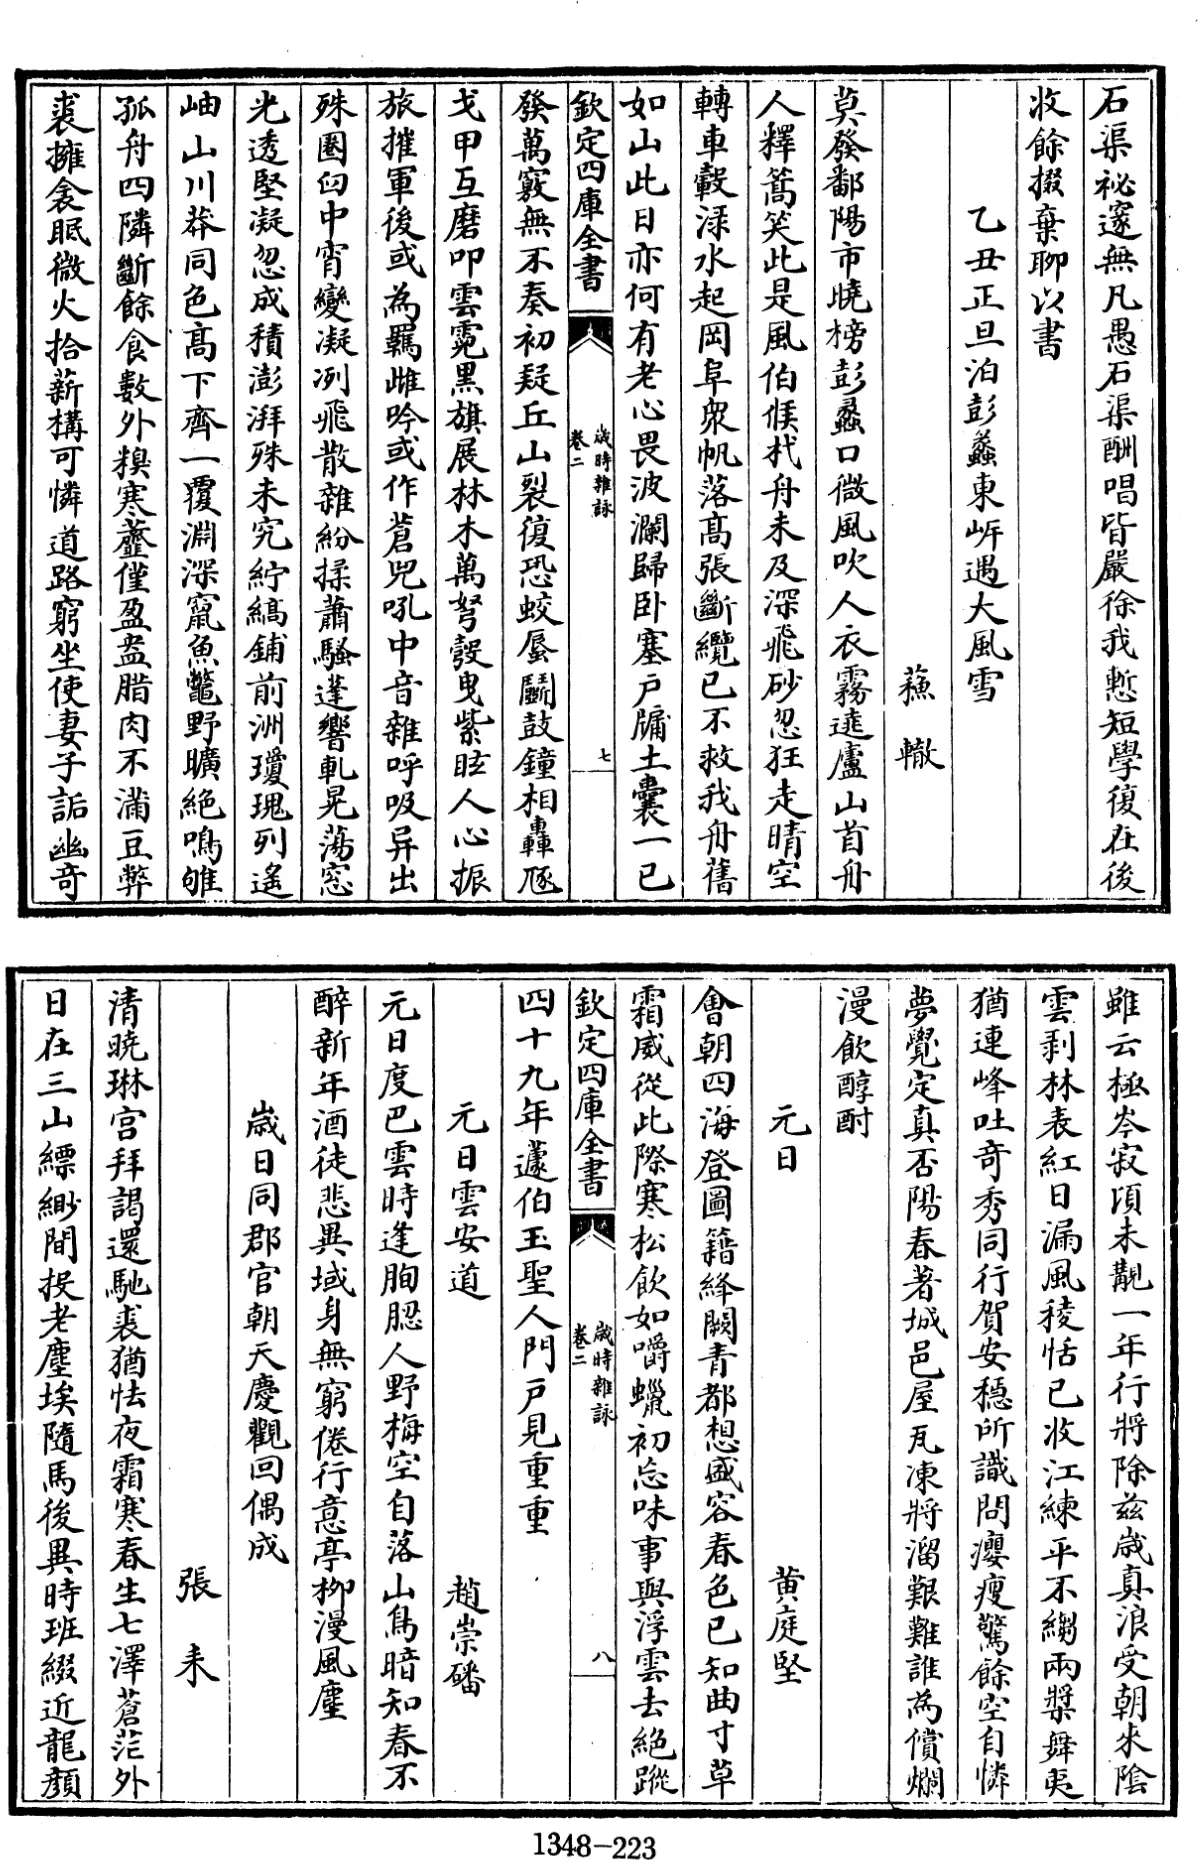 石渠祕邃無凡愚石渠酬唱皆嚴徐我慙短學復在後
收餘掇棄聊以書
乙丑正旦泊彭蠡東岸遇大風雪
蘓轍
莫發鄱陽市曉榜彭蠡口微風吹人衣霧遶廬山首舟
人釋篙笑此是風伯候杙舟未及深飛砂忽狂走晴空
轉車轂渌水起岡阜衆帆落髙張斷纜已不救我舟舊
如山此日亦何有老心畏波瀾歸卧塞戸牖土囊一已
欽定四庫全書
歳時雜詠
卷二
七
發萬竅無不奏初疑丘山裂復恐蛟蜃鬭鼓鐘相轟豗
戈甲互磨叩雲霓黒旗展林木萬弩彀曳紫眩人心振
旅摧軍後或為羈雌吟或作蒼兕吼中音雜呼吸异出
殊圏臼中宵變凝冽飛散雜紛揉蕭騷蓬響軋晃蕩窓
光透堅凝忽成積澎湃殊未究紵縞鋪前洲瓊瑰列遙
岫山川莽同色髙下齊一覆淵深竄魚鼈野曠絶鳴雊
孤舟四隣斷餘食數外糗寒虀僅盈盎腊肉不滿豆弊
裘擁衾眠微火拾薪構可憐道路窮坐使妻子詬幽奇
雖云極岑寂頃未覯一年行將除兹歳真浪受朝來陰
雲剥林表紅日漏風稜恬已收江練平不縐兩槳舞夷
猶連峰吐奇秀同行賀安穏所識問癭瘦驚餘空自憐
夢覺定真否陽春著城邑屋瓦凍將溜艱難誰為償爛
漫飲醇酎
元日
黄庭堅
㑹朝四海登圖籍絳闕青都想盛容春色已知曲寸草
霜威從此際寒松飲如嚼蠟初忘味事與浮雲去絶蹤
欽定四庫全書
歳時雜詠
卷二
八
四十九年蘧伯玉聖人門戸見重重
元日雲安道
趙崇磻
元日度巴雲時逢朐䏰人野梅空自落山鳥暗知春不
醉新年酒徒悲異域身無窮倦行意亭柳漫風塵
歳日同郡官朝天慶觀回偶成
張耒
清曉琳宫拜謁還馳裘猶怯夜霜寒春生七澤蒼茫外
日在三山縹緲間投老塵埃隨馬後異時班綴近龍顔
1348-223